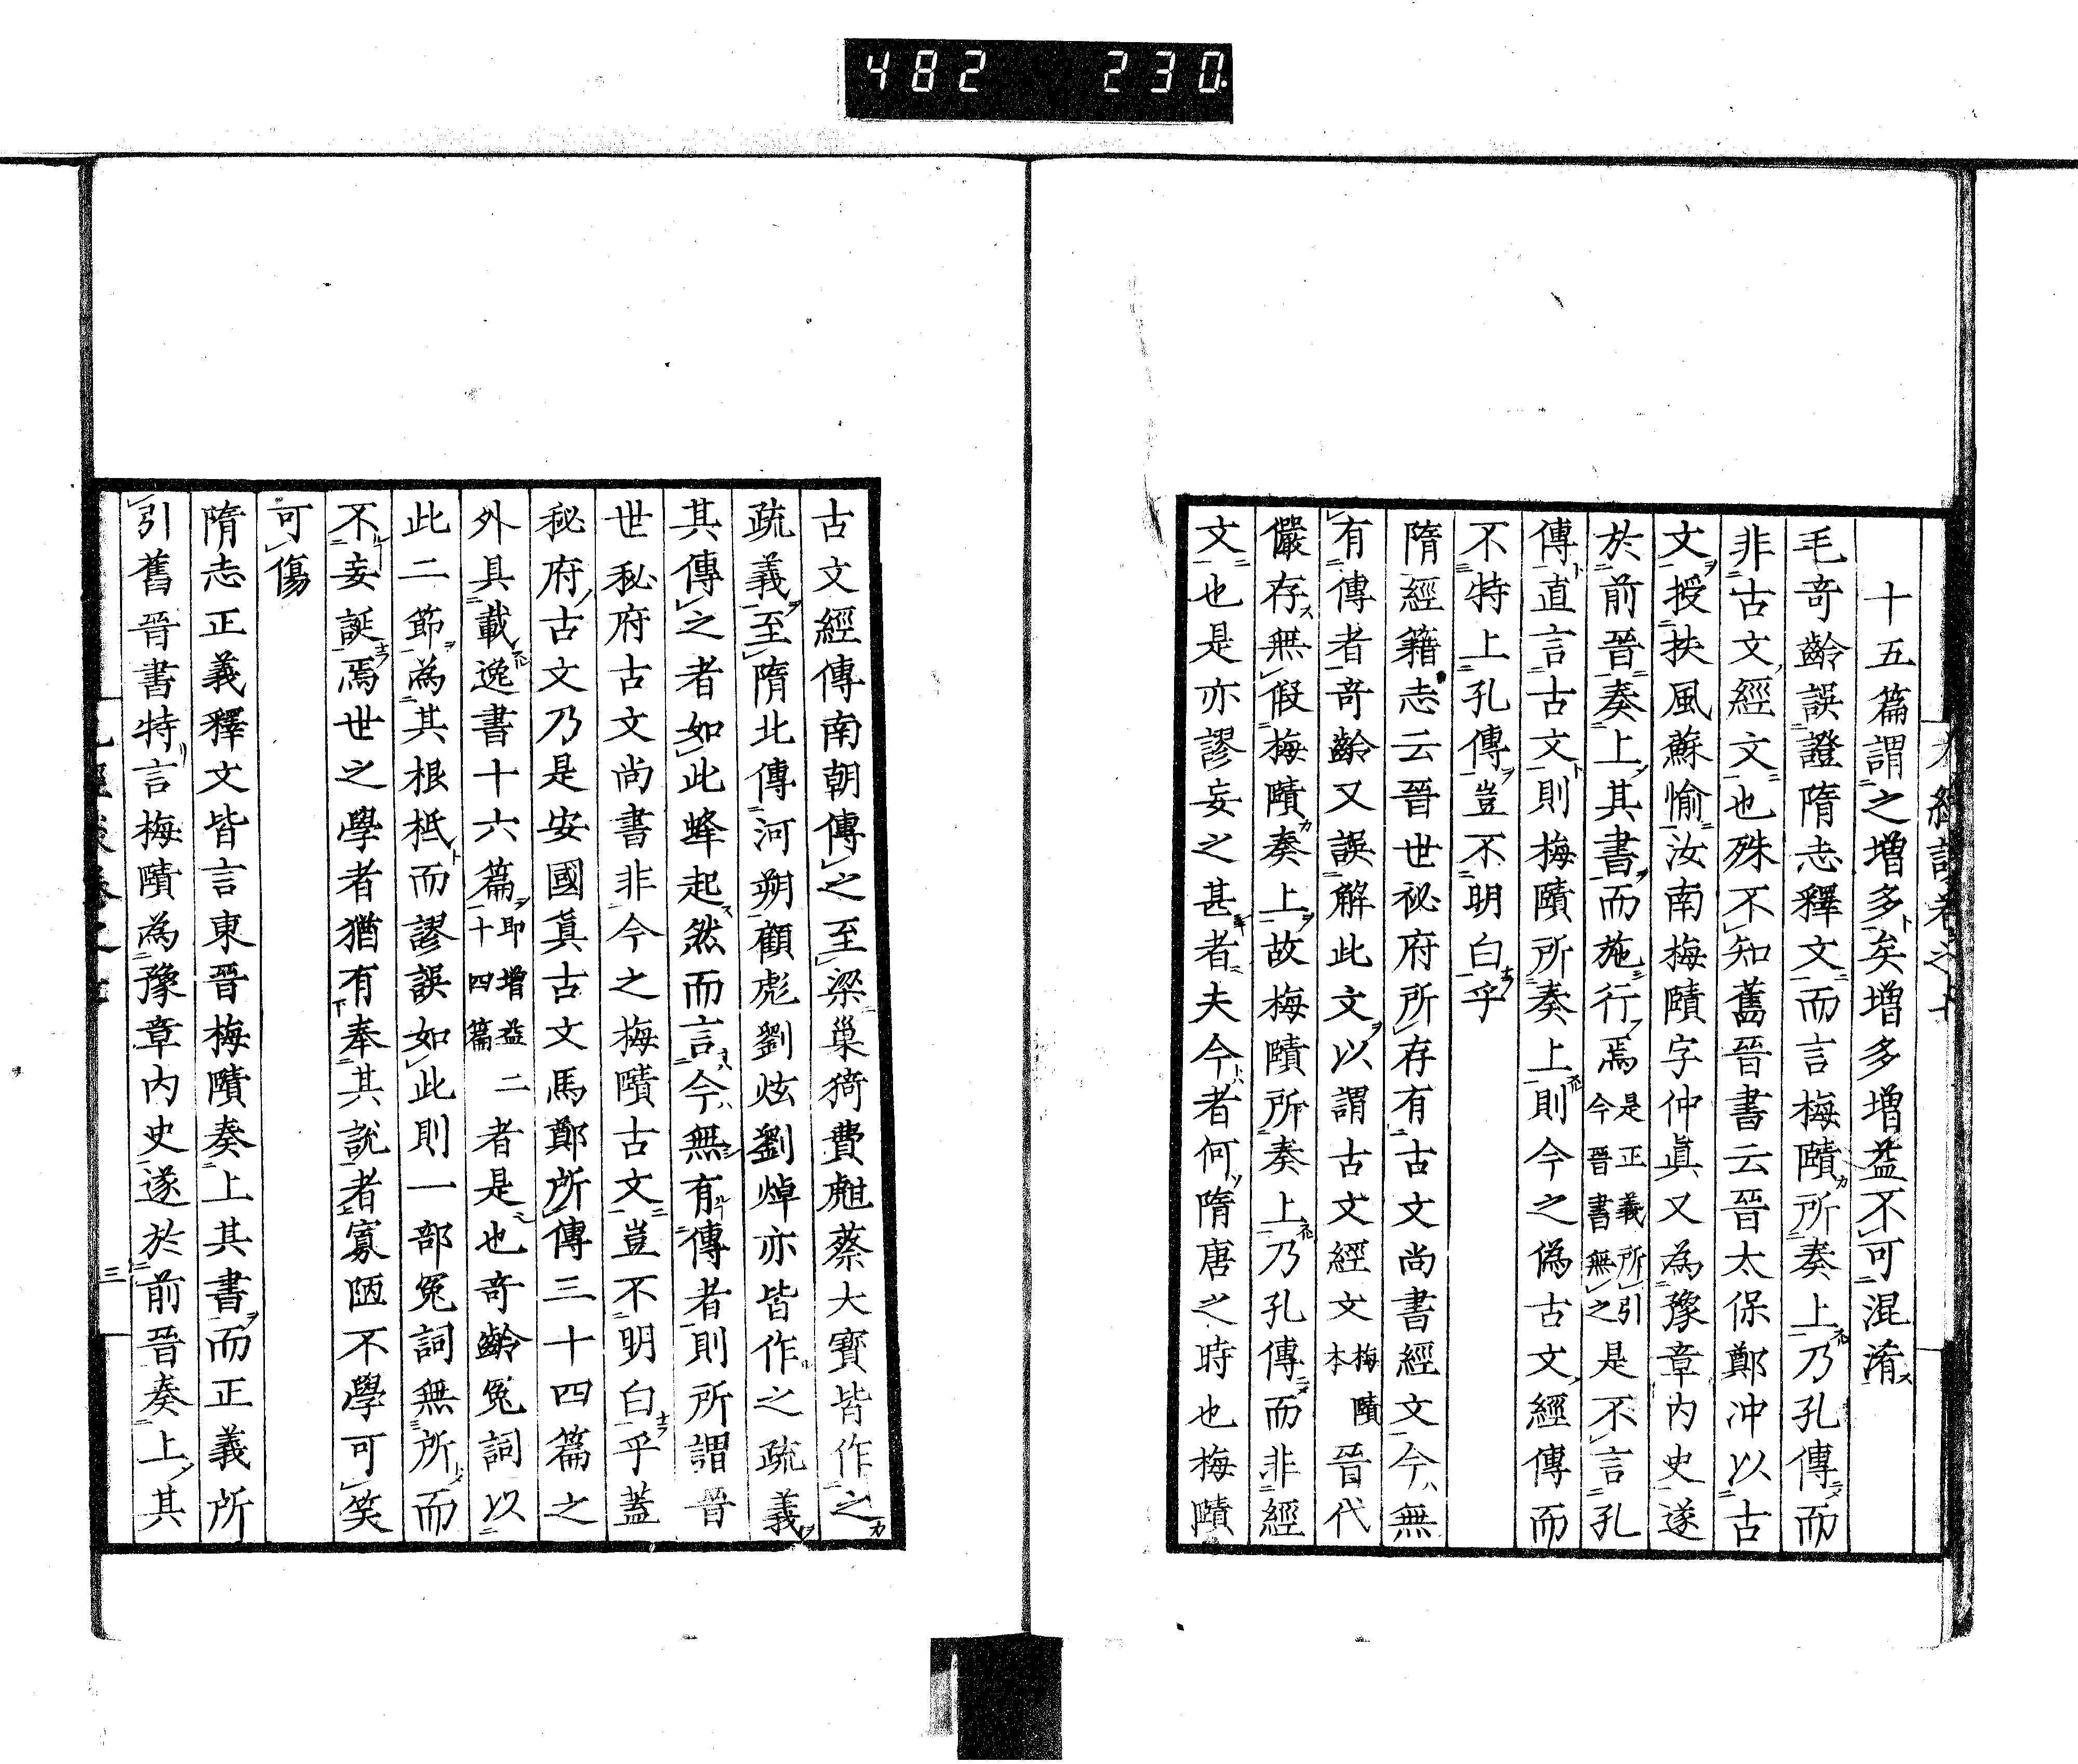 482 230
十五篇謂之増多矣増多増益不可混淆
毛竒齡誤證隋志釋文而言梅賾所奏上乃孔傳而
非古文經文也殊不知舊晉書云晉太保鄭冲以古
文授扶風蘇愉汝南梅賾字仲眞又為豫章内史遂
於前晉奏上其書而施行焉是正義所引今晉書無之是不言孔
傳直言古文則梅賾所奏上則今之偽古文經傳而
不特上孔傳豈不明白乎
隋經籍志云晉世祕府所存有古文尚書經文今無
有傳者竒齡又誤解此文以謂古文經文梅賾本晉代
儼存無假梅賾奏上故梅賾所奏上乃孔傳而非經
文也是亦謬妄之甚者夫今者何隋唐之時也梅賾
古文經傳南朝傳之至梁巢猗費甝蔡大寳皆作之
疏義至隋北傳河朔顧彪劉炫劉焯亦皆作之疏義
其傳之者如此蜂起然而言今無有傳者則所謂晉
世秘府古文尚書非今之梅賾古文豈不明白乎蓋
秘府古文乃是安國眞古文馬鄭所傳三十四篇之
外具載逸書十六篇即増益十四篇二者是也竒齡冤詞以
此二節為其根柢而謬誤如此則一部冤詞無所而
不妄誕焉世之學者猶有奉其説者寡陋不學可笑
可傷
隋志正義釋文皆言東晉梅賾奏上其書而正義所
引舊晉書特言梅賾為豫章内史遂於前晉奏上其
三